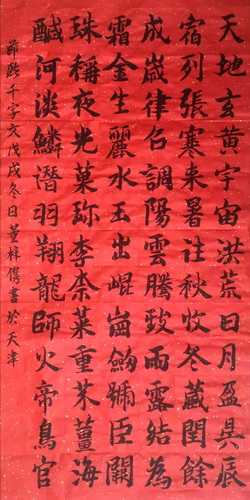 天地玄黃宇宙洪荒日月盈昃辰
宿列張寒来暑往秋收冬藏閏餘
成嵗律呂調陽雲騰致雨露結為
霜金生麗水玉出崐崗劒號巨闕
珠稱夜光菓珍李柰菜重芥薑海
鹹河淡鱗潛羽翔龍師火帝鳥官
節臨千字文戊戌冬日董梓書於天津